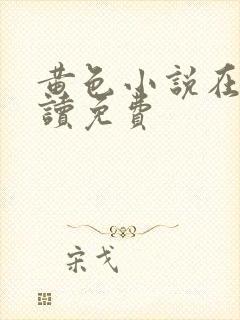 黄色小説在
讀免費
宋戈